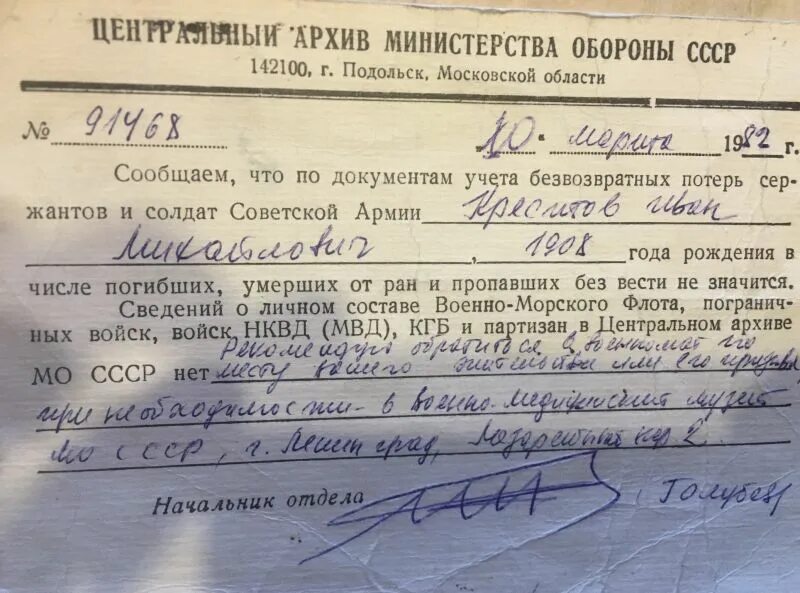 ЦЕНТРАЛЬНЫЙ АРХИВ МИНИСТЕРСТВА ОБОРОНЫ СССР
142100, г. Подольск, Московской области
№ 91468 „10“ марта 1982 г.
Сообщаем, что по документам учета безвозвратных потерь сер-
жантов и солдат Советской Армии Крестов Иван
Михайлович, 1908 года рождения в
числе погибших, умерших от ран и пропавших без вести не значится.
Сведений о личном составе Военно-Морского Флота, погранич-
ных войск, войск НКВД (МВД), КГБ и партизан в Центральном архиве
Рекомендую обратиться в военкомат по
МО СССР нет месту вашего жительства или его призыва
при необходимости - в Военно-медицинский музей
МО СССР, г. Ленинград, Лазаретный пер 2.
Начальник отдела Голубев